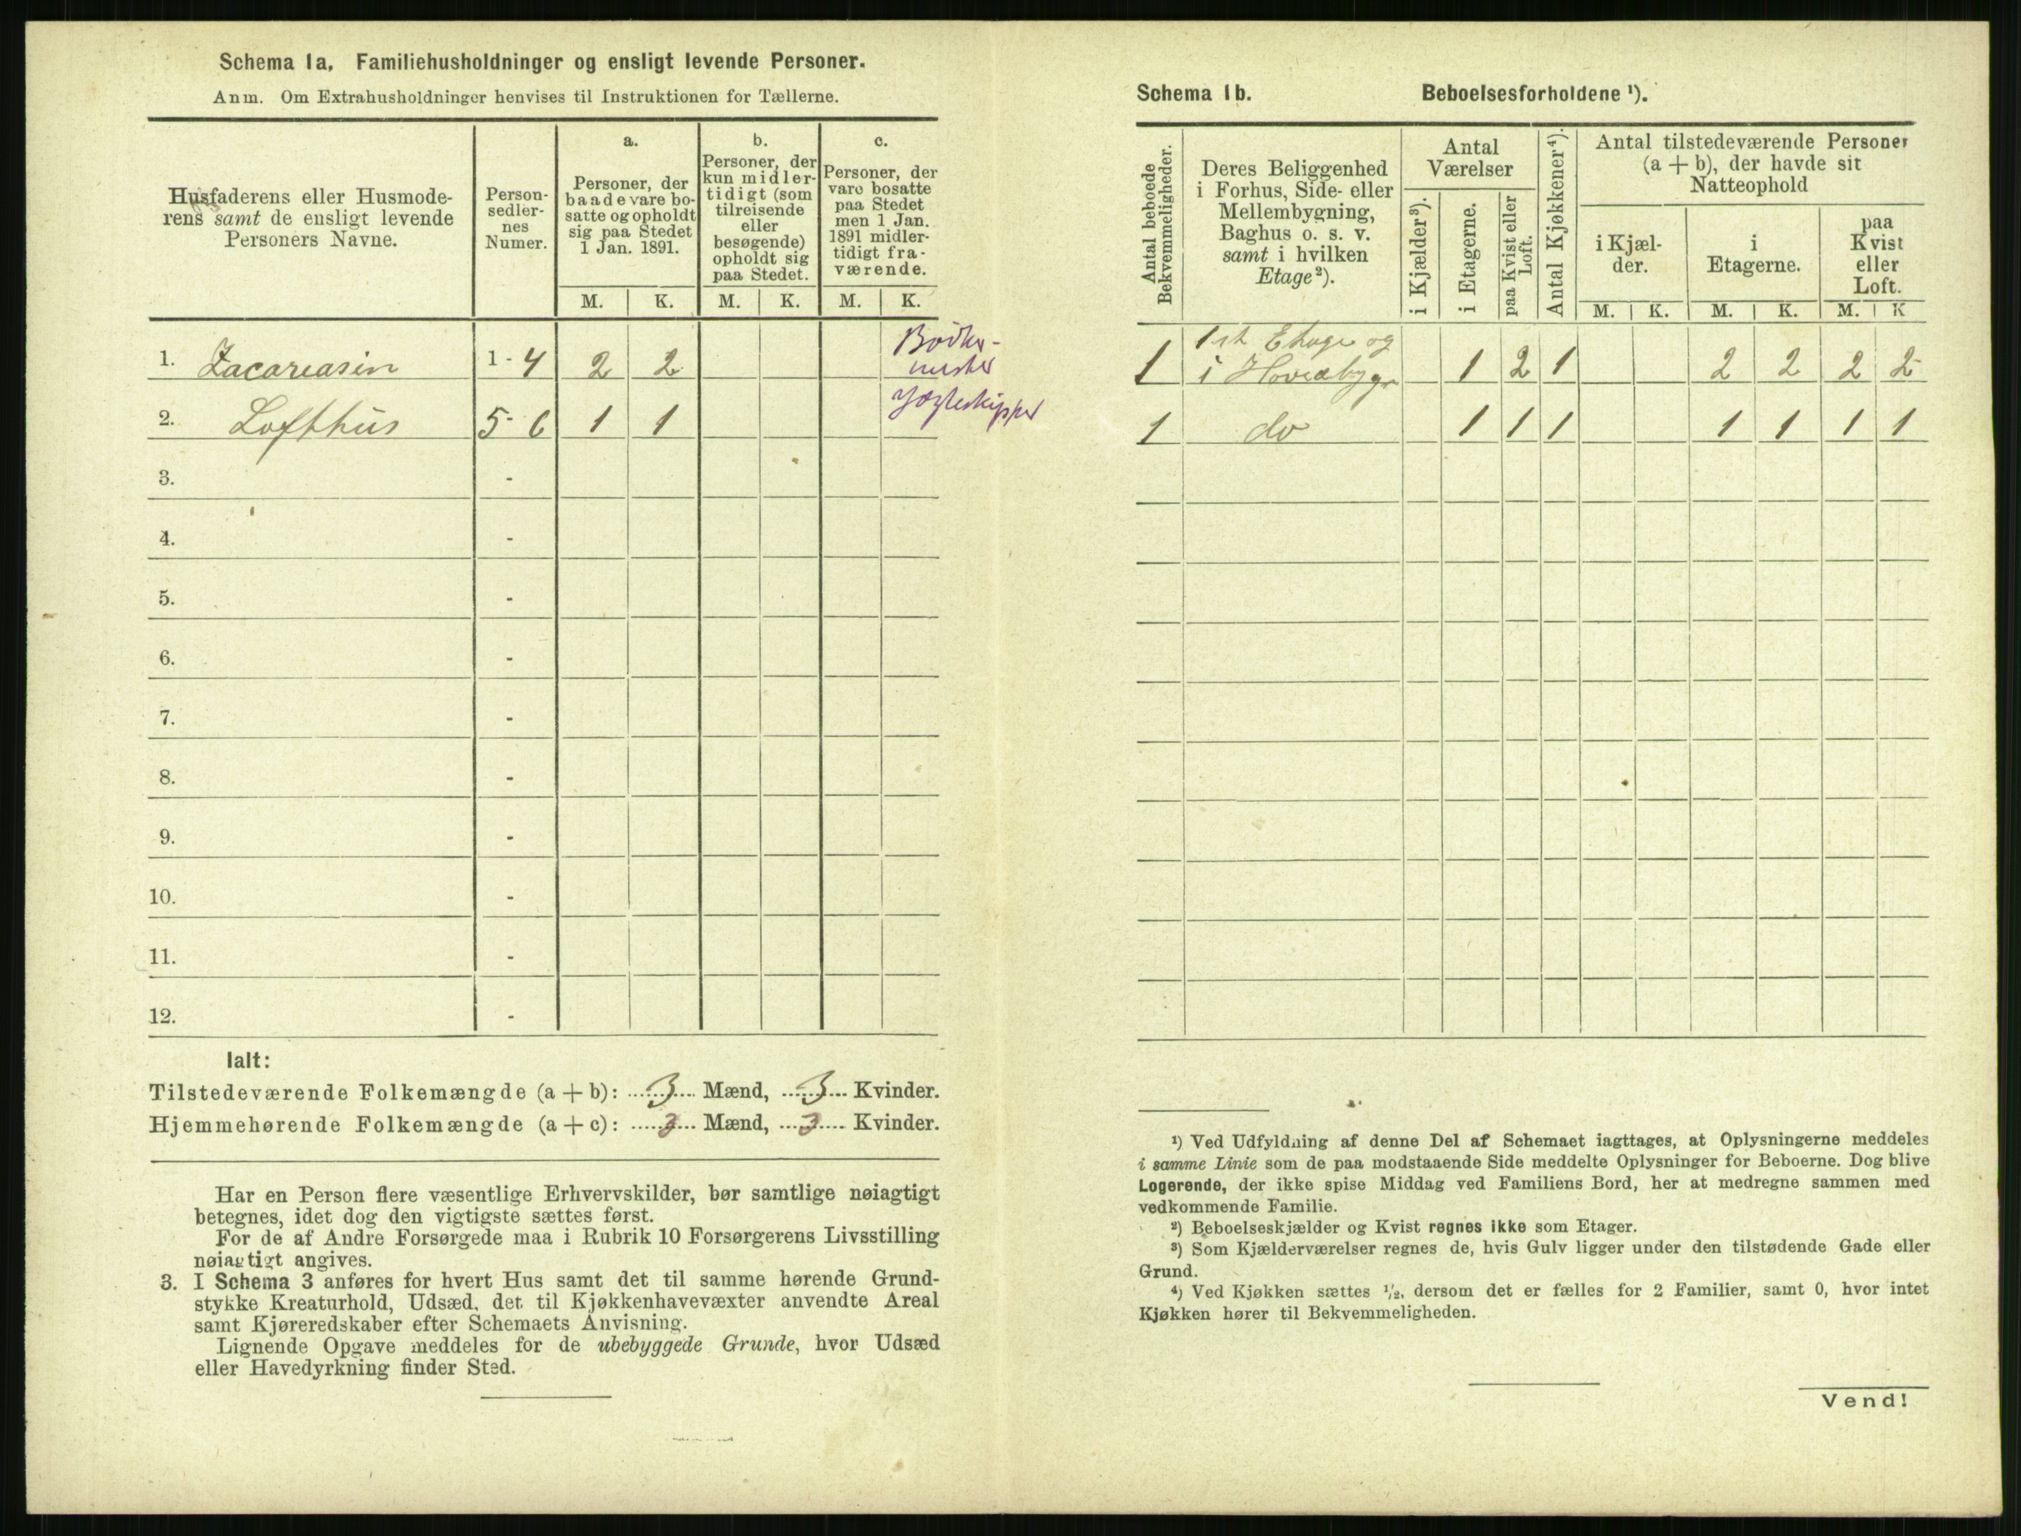 Schema 1a. Familiehusholdninger og ensligt levende Personer.
Anm. Om Extrahusholdninger henvises til Instruktionen for Tællerne.
Husfaderens eller Husmoderens samt de ensligt levende Personers Navne.
Personsedlernes Numer.
a.
Personer, der baade vare bosatte og opholdt sig paa Stedet 1 Jan. 1891.
b.
Personer, der kun midlertidigt (som tilreisende eller besøgende) opholdt sig paa Stedet.
c.
Personer, der vare bosatte paa Stedet men 1 Jan. 1891 midlertidigt fraværende.
M. K. M. K. M. K.
1. Zacareasin 1 - 4 2 2 Bødkermester
2. Lofthus 5 - 6 1 1 Jægteskipper
3. -
4. -
5. -
6. -
7. -
8. -
9. -
10. -
11. -
12. -
Ialt:
Tilstedeværende Folkemængde (a + b): 3 Mænd, 3 Kvinder.
Hjemmehørende Folkemængde (a + c): 3 Mænd, 3 Kvinder.
Har en Person flere væsentlige Erhvervskilder, bør samtlige nøiagtigt
betegnes, idet dog den vigtigste sættes først.
For de af Andre Forsørgede maa i Rubrik 10 Forsørgerens Livsstilling
nøiagtigt angives.
3. I Schema 3 anføres for hvert Hus samt det til samme hørende Grund-
stykke Kreaturhold, Udsæd, det til Kjøkkenhavevæxter anvendte Areal
samt Kjøreredskaber efter Schemaets Anvisning.
Lignende Opgave meddeles for de ubebyggede Grunde, hvor Udsæd
eller Havedyrkning finder Sted.
Schema 1b. Beboelsesforholdene ¹).
Antal beboede Bekvemmeligheder.
Deres Beliggenhed i Forhus, Side- eller Mellembygning, Baghus o. s. v. samt i hvilken Etage²).
Antal Værelser
i Kjælder³).
i Etagerne.
paa Kvist eller Loft.
Antal Kjøkkener⁴).
Antal tilstedeværende Personer (a + b), der havde sit Natteophold
i Kjælder.
i Etagerne.
paa Kvist eller Loft.
M. K. M. K. M. K
1 1st Etage og i Hovedbyg 1 2 1 2 2 2 2
1 do 1 1 1 1 1 1 1
¹) Ved Udfyldning af denne Del af Schemaet iagttages, at Oplysningerne meddeles
i samme Linie som de paa modstaaende Side meddelte Oplysninger for Beboerne. Dog blive
Logerende, der ikke spise Middag ved Familiens Bord, her at medregne sammen med
vedkommende Familie.
²) Beboelseskjælder og Kvist regnes ikke som Etager.
³) Som Kjælderværelser regnes de, hvis Gulv ligger under den tilstødende Gade eller
Grund.
⁴) Ved Kjøkken sættes ½, dersom det er fælles for 2 Familier, samt 0, hvor intet
Kjøkken hører til Bekvemmeligheden.
Vend!